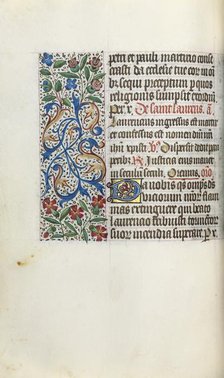 petri et pauli martirio con
festi da ecclesie tue eor in om
ibus sequi preceptum p quos
religionis sumpsit exordium
Per x. De sanct laurens. a.
Laurencius ingressus est martir
et confessus est nomen domini
ihu xpisti v̉. Dispersit dedit pau
peribz R. Justicia eius manet
in seculum seculi. Oremus, oro
Da nobis qs omps ds
viciorum nrorum flam
mas extinguere qui beato
laurencio tribuisti tormentor
suor incendia superare Per x.